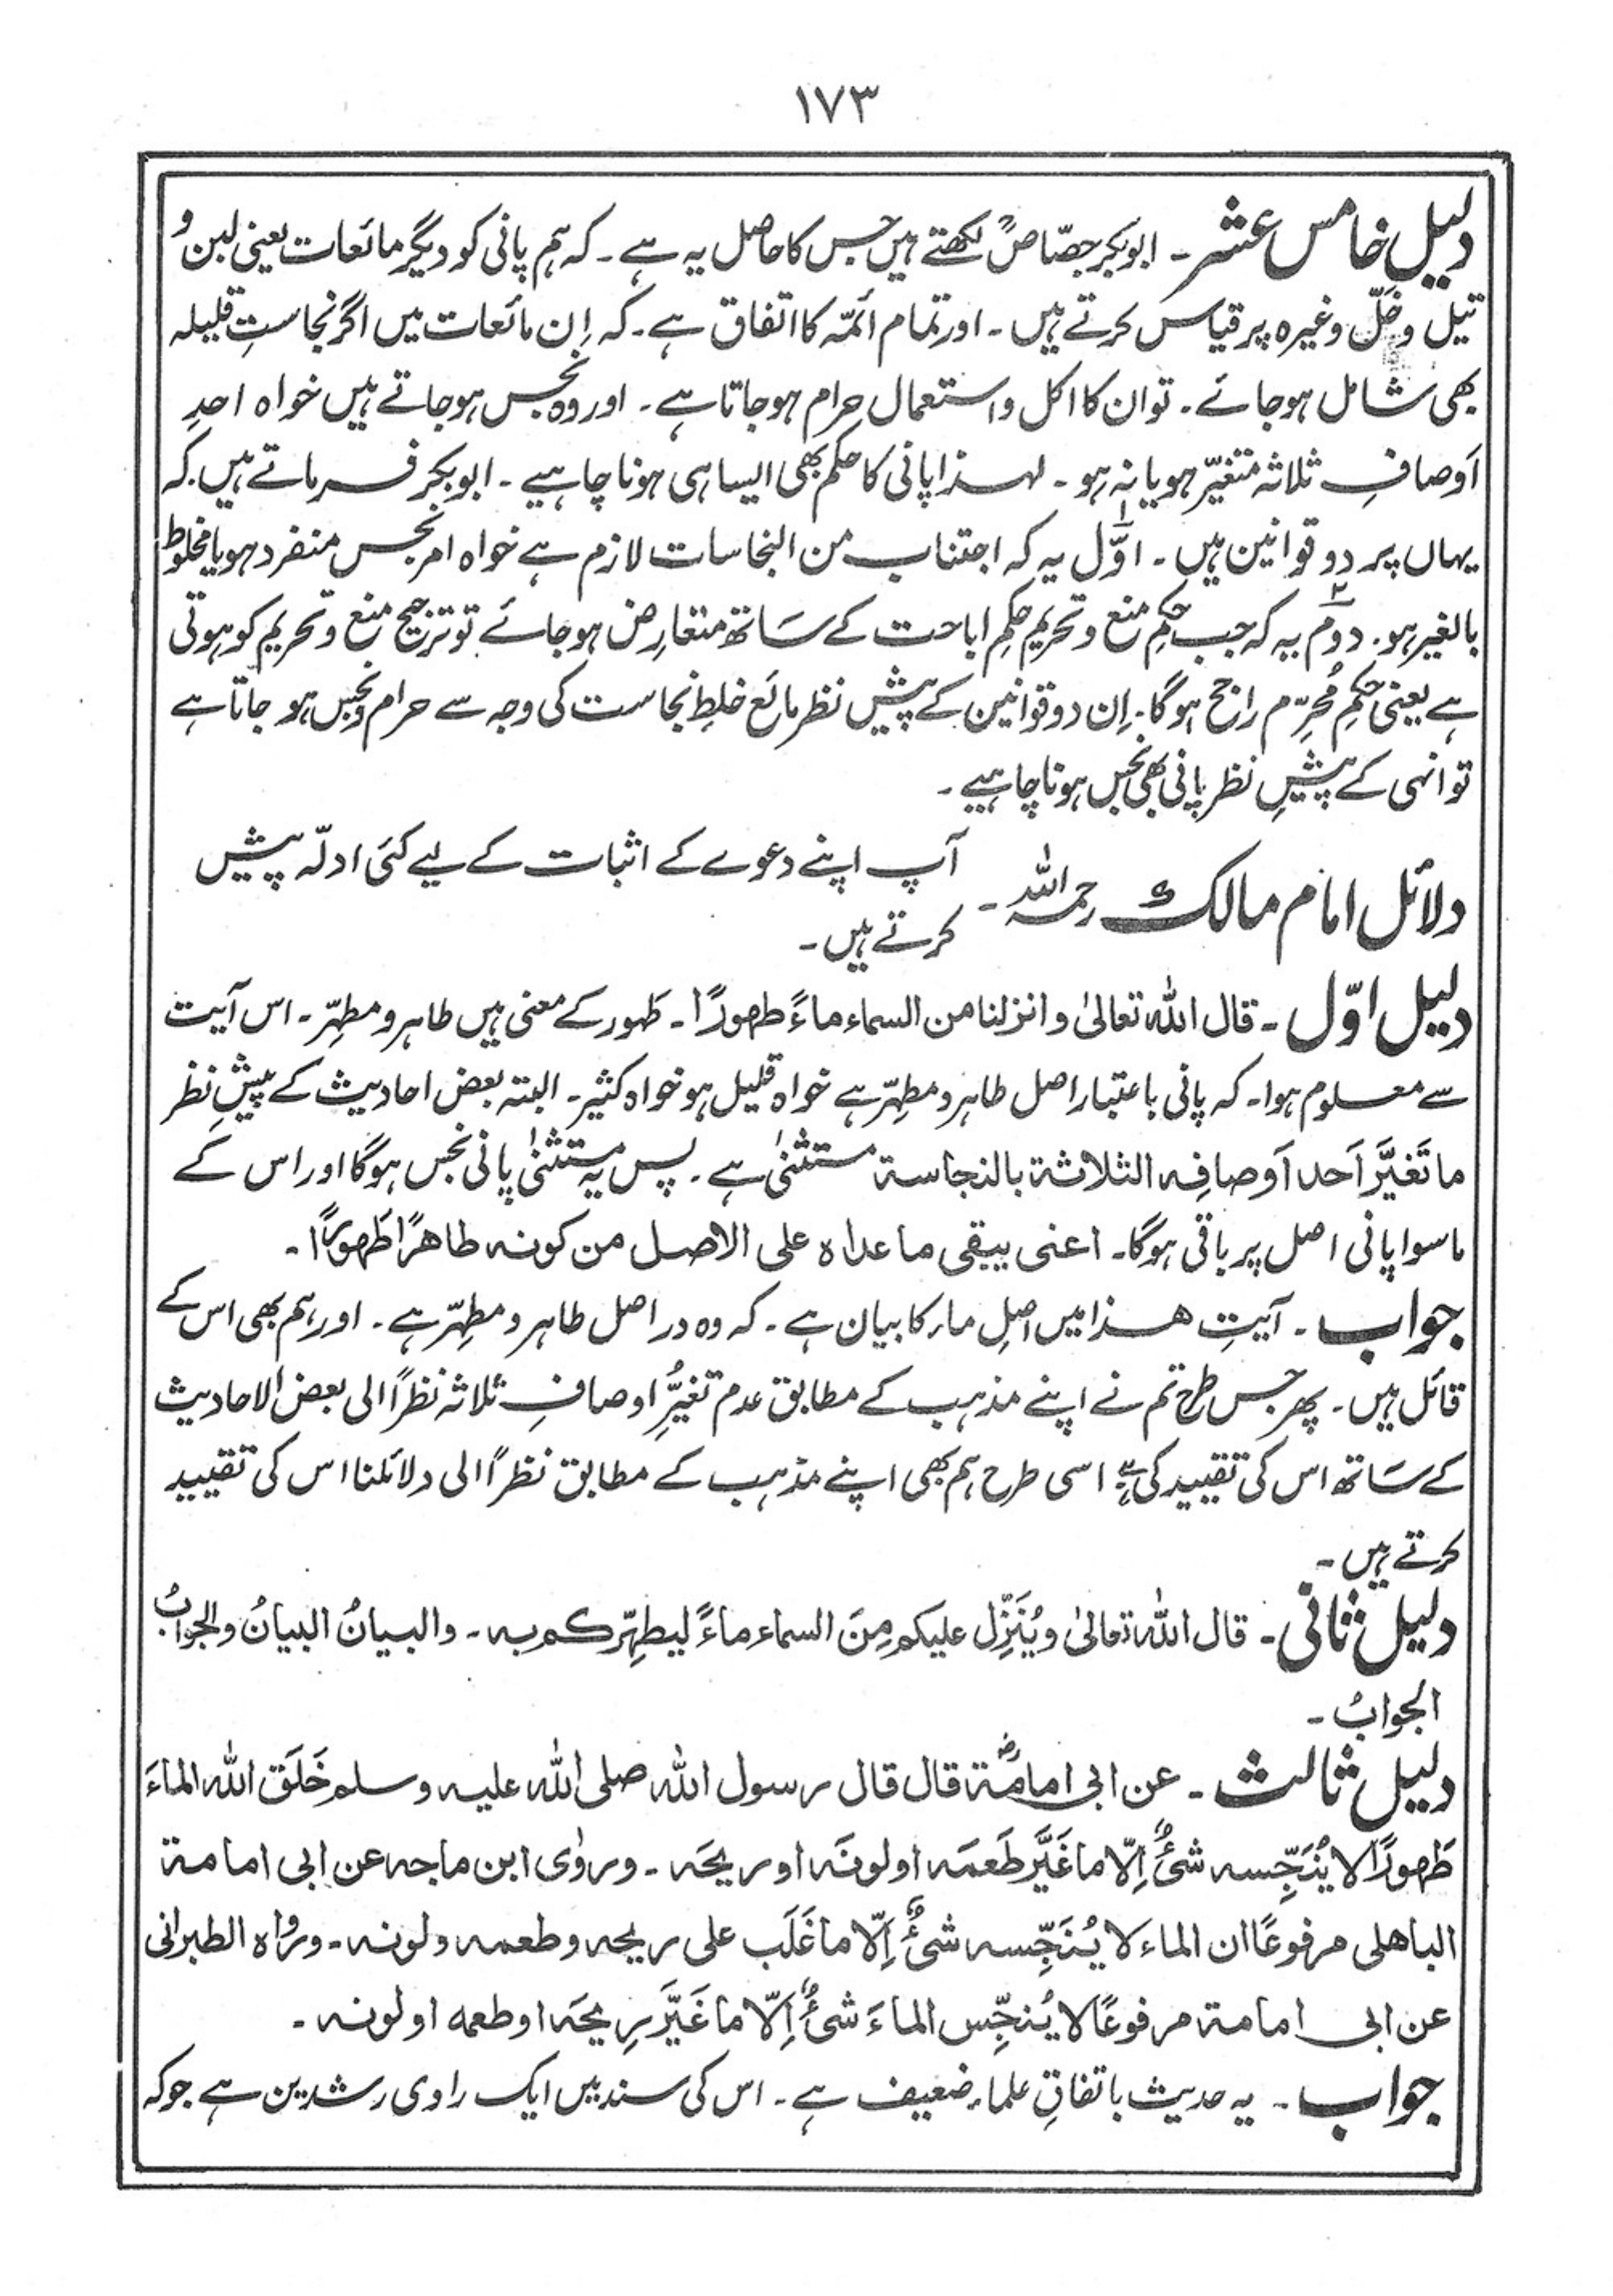 ۱۷۳
دلیل خامس عشر ۔ ابوبکر جصّاصؒ لکھتے ہیں جس کا حاصل یہ ہے ۔ کہ ہم پانی کو دیگر مائعات یعنی لبن و
تیل و خَلّ وغیرہ پر قیاس کرتے ہیں ۔ اور تمام ائمّہ کا اتفاق ہے ۔ کہ اِن مائعات میں اگر نجاستِ قلیلہ
بھی شامل ہوجائے ۔ تو ان کا اکل و استعمال حرام ہوجاتا ہے ۔ اور وہ نجس ہوجاتے ہیں خواہ احدِ
اَوصافِ ثلاثہ متغیّر ہو یا نہ ہو ۔ لہٰذا پانی کا حکم بھی ایسا ہی ہونا چاہیے ۔ ابوبکر فرماتے ہیں کہ
یہاں پر دو قوانین ہیں ۔ اوّل یہ کہ اجتناب من النجاسات لازم ہے خواہ امر نجس منفرد ہو یا مخلوط
بالغیر ہو ۔ دوم یہ کہ جب حکمِ منع و تحریم حکمِ اباحت کے ساتھ متعارِض ہوجائے تو ترجیح منع و تحریم کو ہوتی
ہے یعنی حکمِ مُحَرِّم راجح ہوگا ۔ اِن دو قوانین کے پیشِ نظر مائع خلطِ نجاست کی وجہ سے حرام و نجس ہو جاتا ہے
تو انہی کے پیشِ نظر پانی بھی نجس ہونا چاہیے ۔
دلائل امام مالک رحمہ اللہ ۔ آپ اپنے دعوے کے اثبات کے لیے کئی ادلّہ پیش
کرتے ہیں ۔
دلیل اوّل ۔ قال اللہ تعالیٰ وانزلنا من السماء ماءً طھورًا ۔ طَہور کے معنی ہیں طاہر و مطہِّر ۔ اس آیت
سے معلوم ہوا ۔ کہ پانی باعتبار اصل طاہر و مطہِّر ہے خواہ قلیل ہو خواہ کثیر ۔ البتہ بعض احادیث کے پیشِ نظر
ما تَغیَّر اَحد اَوصافِہ الثلاثۃ بالنجاسۃ مستثنیٰ ہے ۔ پس یہ مستثنیٰ پانی نجس ہوگا اور اس کے
ماسوا پانی اصل پر باقی ہوگا ۔ اعنی یبقی ما عداہ علی الاصل من کونہ طاھرًا طَھورًا ۔
جواب ۔ آیتِ ھٰذا میں اصلِ ماء کا بیان ہے ۔ کہ وہ در اصل طاہر و مطہِّر ہے ۔ اور ہم بھی اس کے
قائل ہیں ۔ پھر جس طرح تم نے اپنے مذہب کے مطابق عدم تغیُّرِ اوصافِ ثلاثہ نظرًا الی بعض الاحادیث
کے ساتھ اس کی تقیید کی ہے اسی طرح ہم بھی اپنے مذہب کے مطابق نظرًا الی دلائلنا اس کی تقیید
کرتے ہیں ۔
دلیل ثانی ۔ قال اللہ تعالیٰ ویُنَزِّل علیکم مِنَ السماء ماءً لیطہِّرکم بہ ۔ والبیانُ البیانُ والجوابُ
الجوابُ ۔
دلیل ثالث ۔ عن ابی امامۃؓ قال قال رسول اللہ صلی اللہ علیہ وسلم خَلَق اللہ الماءَ
طَھورًا لا یُنَجِّسہ شیءٌ اِلّا ما غَیَّر طَعمَہ او لونَہ او ریحَہ ۔ وروٰی ابن ماجہ عن ابی امامۃ
الباھلی مرفوعًا ان الماء لا یُنَجِّسہ شیءٌ اِلّا ما غَلَب علی ریحہ وطعمہ ولونہ ۔ ورواہ الطبرانی
عن ابی امامۃ مرفوعًا لا یُنجِّس الماءَ شیءٌ اِلّا ما غَیَّر رِیحَہ او طعمہ او لونہ ۔
جواب ۔ یہ حدیث باتفاقِ علماء ضعیف ہے ۔ اس کی سند میں ایک راوی رشدین ہے جو کہ